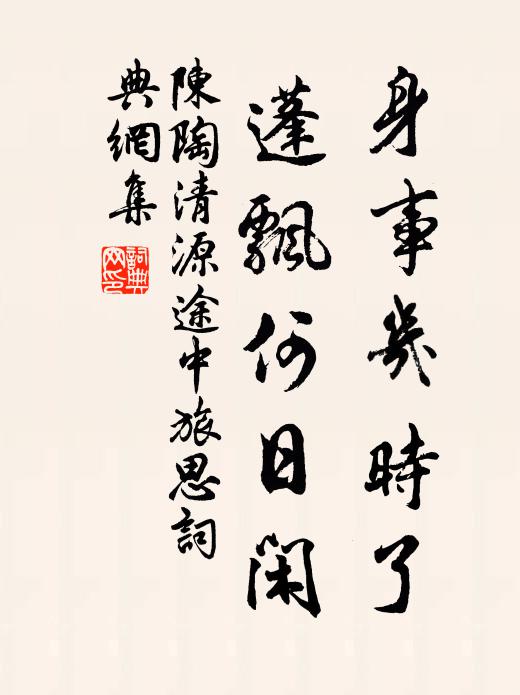 身事幾時了
蓬飄何日閑
陳陶清源途中旅思詞
典網集
詞典
网印